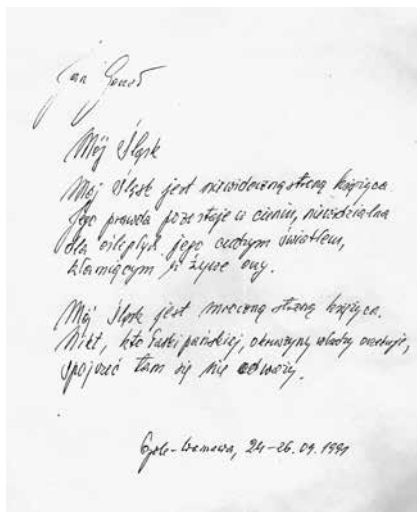 Jan
Mój Śląsk
Mój Śląsk jest niewidoczną stroną księżyca
Jego prawda pozostaje w cieniu, niewidzialna
dla oślepłych jego cudzym światłem,
kłamiącym w żywe oczy.
Mój Śląsk jest mroczną stroną księżyca.
Nikt, kto łaski pańskiej, okruszyny władzy
spojrzeć tam się nie odważy.
24-26.09.1991